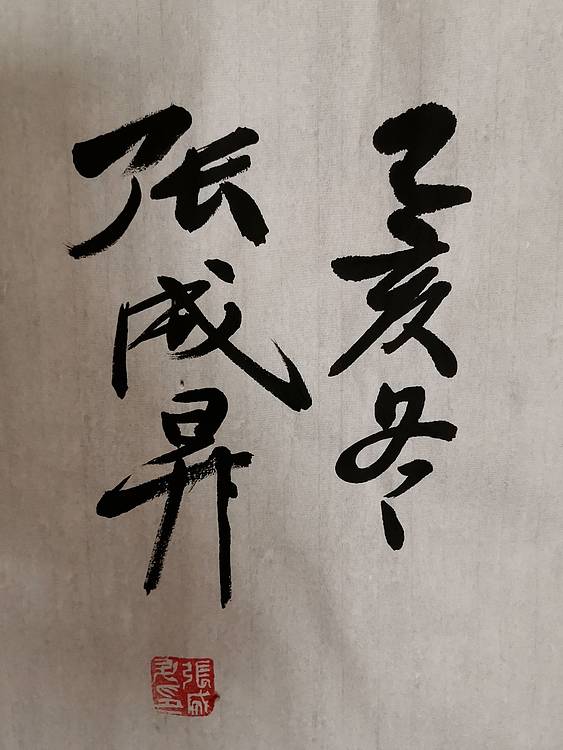 己亥冬
张成昇
張成
昇印